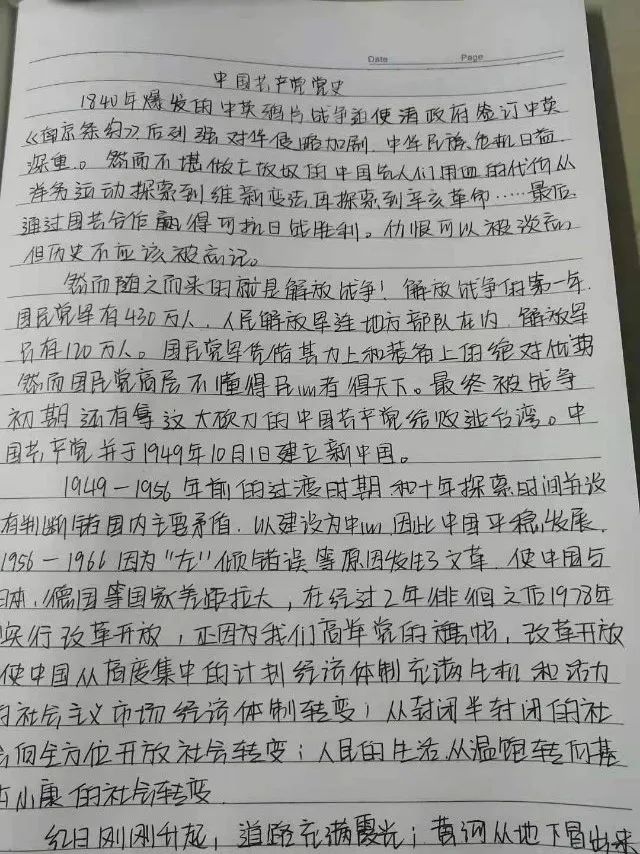 Date Page
中国共产党党史
1840年爆发的中英鸦片战争迫使清政府签订中英
《南京条约》后列强对华侵略加剧,中华民族危机日益
深重。然而不堪做亡故奴的中国人们用血的代价从
洋务运动探索到维新变法,再探索到辛亥革命……最后
通过国共合作赢得了抗日战胜利。仇恨可以被淡忘,
但历史不应该被忘记。
然而随之而来的就是解放战争!解放战争的第一年,
国民党军有430万人,人民解放军连地方部队在内,解放军
只有120万人。国民党军凭借其力上和装备上的绝对优势
然而国民党高层不懂得民心者得天下。最终被战争
初期还有拿这大砍刀的中国共产党给败逃台湾。中
国共产党并于1949年10月1日建立新中国。
1949-1956年前的过渡时期和十年探索时间并没
有判断错国内主要矛盾,以建设为中心,因此中国平稳发展。
1956-1966因为"左"倾错误等原因发生了文革,使中国与
日本、德国等国家差距拉大,在经过2年徘徊之后1978年
实行改革开放,正因为我们高举党的旗帜,改革开放
使中国从高度集中的计划经济体制充满生机和活力
的社会主义市场经济体制转变;从封闭半封闭的社
会向全方位开放社会转变;人民的生活从温饱转向基
本小康的社会转变.
红日刚刚升起,道路充满霞光;黄河从地下冒出来